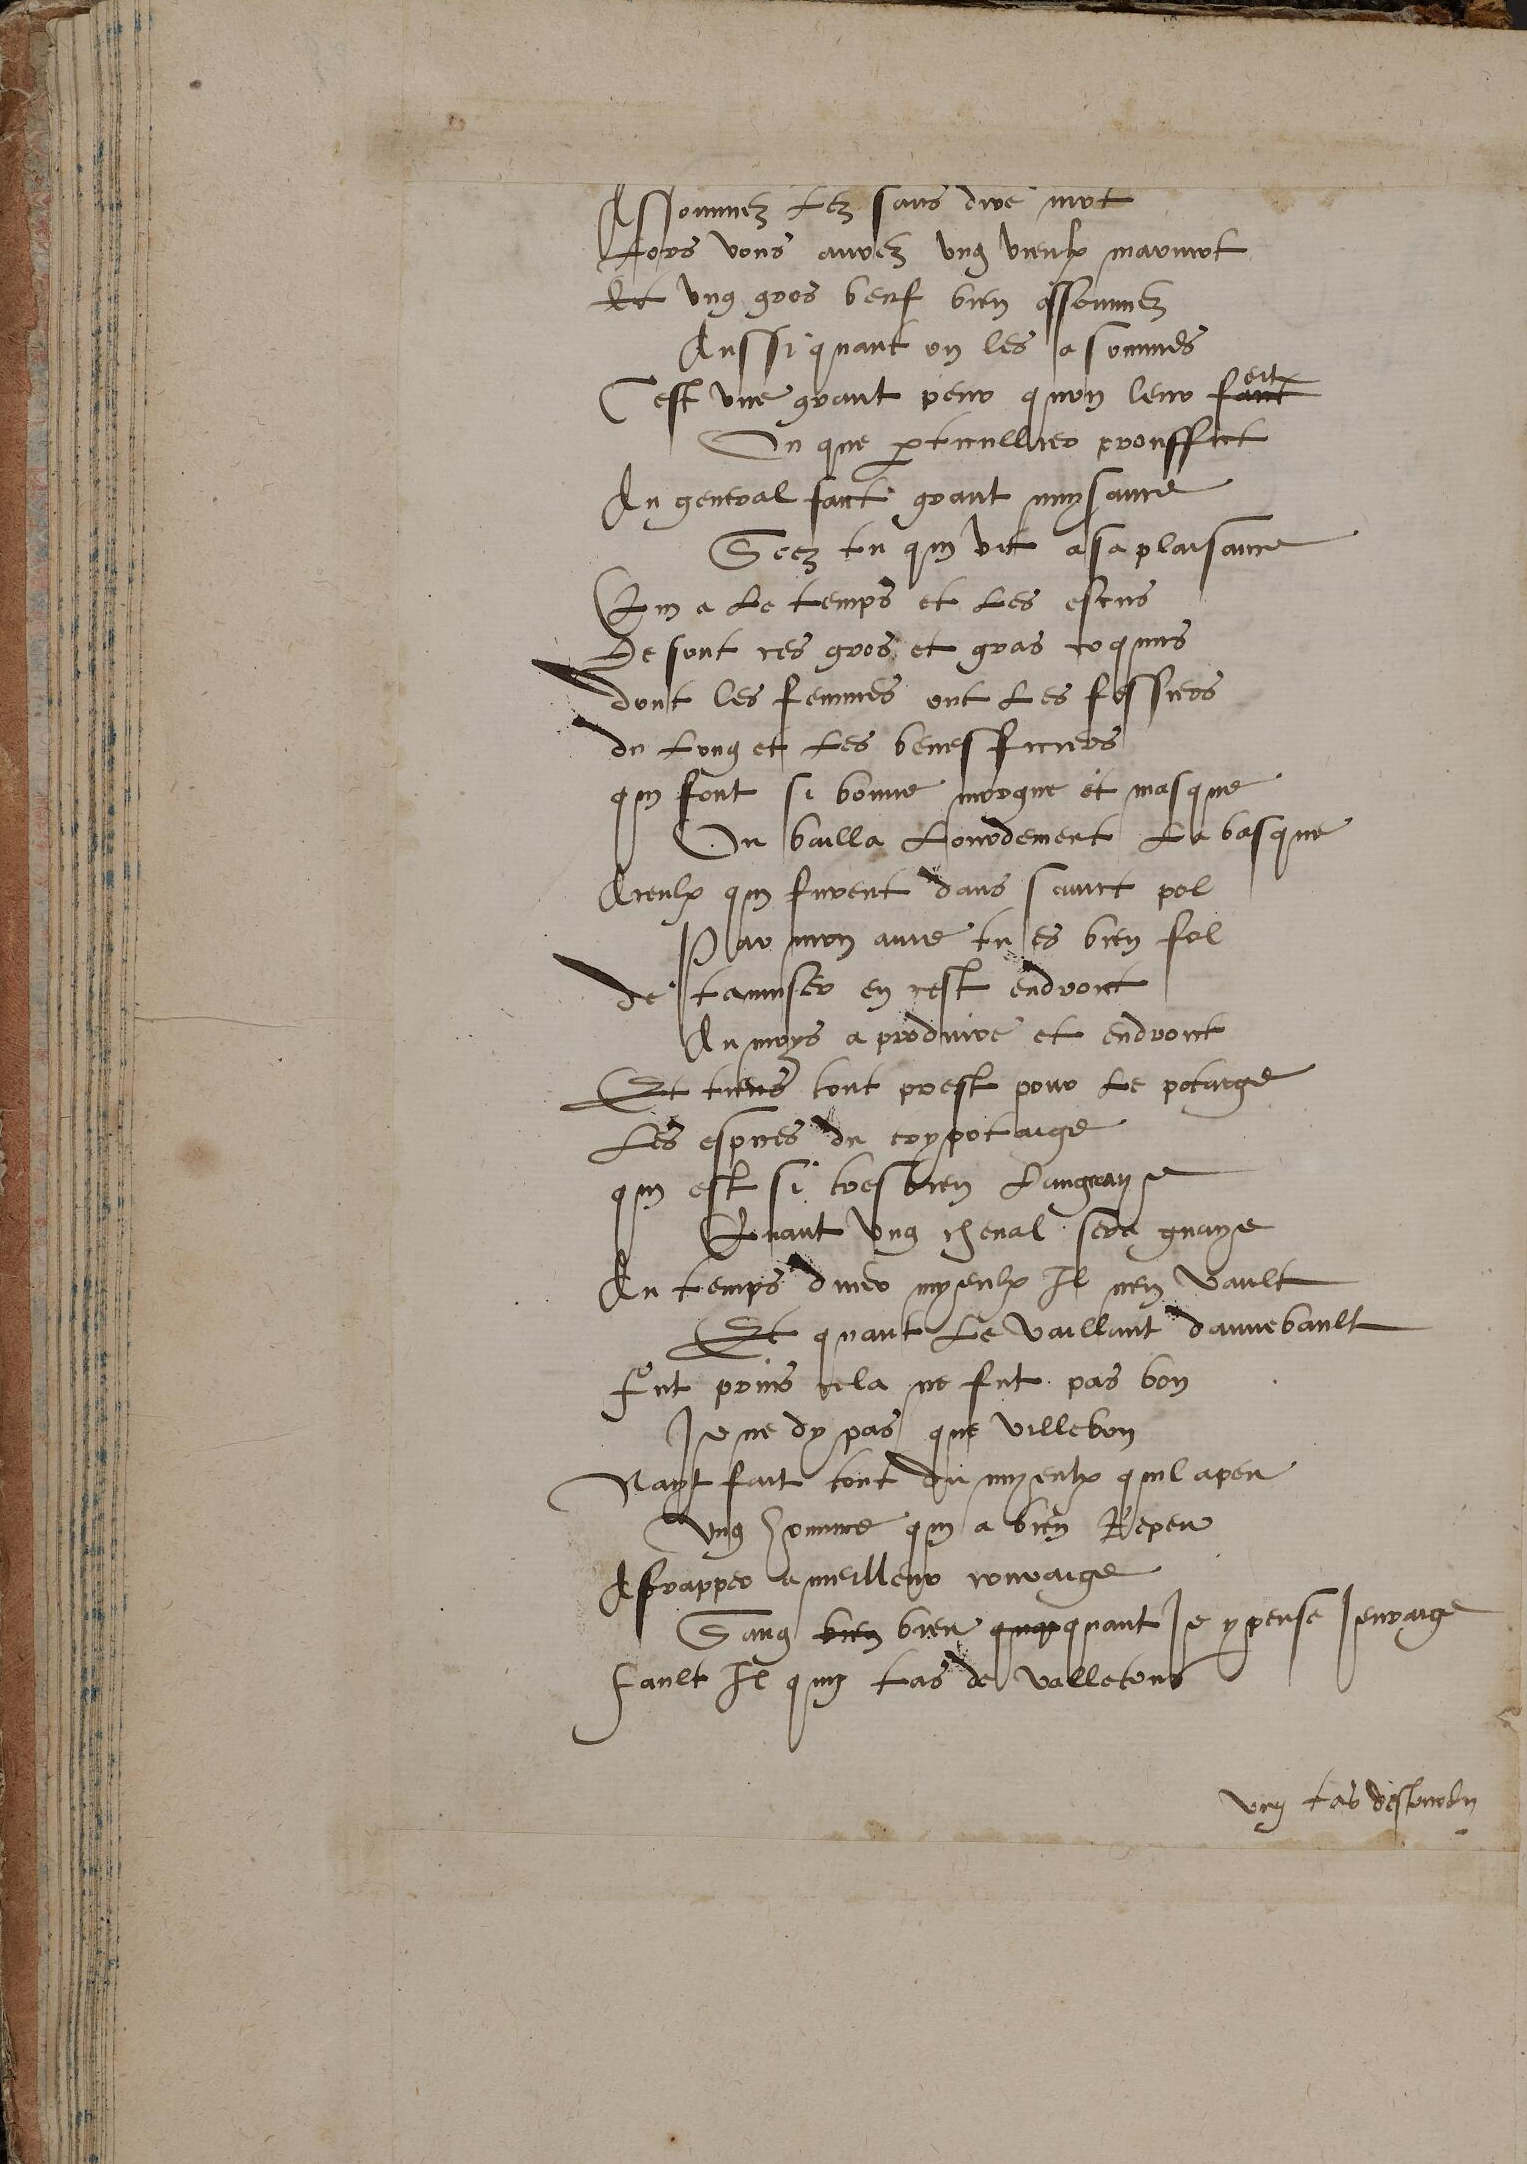 Assommez Lez sans dire mot
Lors vous aurez ung vieulx marmot
Et ung gros beuf bien assommez
Aussi quant on les a sommes
Cest une grant peur quon leur faict eit
On que particullier prouffict
Au general faict grant nuysance
Scez tu qui vit a sa plaisance
Qui a Le temps et Les escus
Ce sont ces gros et gras coquus
dont les femmes ont Les fessiers
du Long et Les benefficiers
qui font si bonne morgue et masque
On bailla Lourdement La basque
A ceulx qui furent dans sainct pol
Par mon ame tu es bien fol
de tamuser en cest endroict
Au moys a produire et endroict
Et tiens tout prest pour Le potaige
Les espices du trypotaige
qui est si tresbien
Quant ung cheval sera guaye
Au temps diver myeulx Il nen vault
Et quant Le vaillant dannebault
Fut prins cela ne fut pas bon
Je ne dy pas que villebon
Nayt fait tout du myeulx quil a peu
Ung homme qui a bien Repeu
A frapper a meilleur couraige
Sang bien bieu quant Je y pense Jenraige
Fault Il quung tas de valletons
ung tas